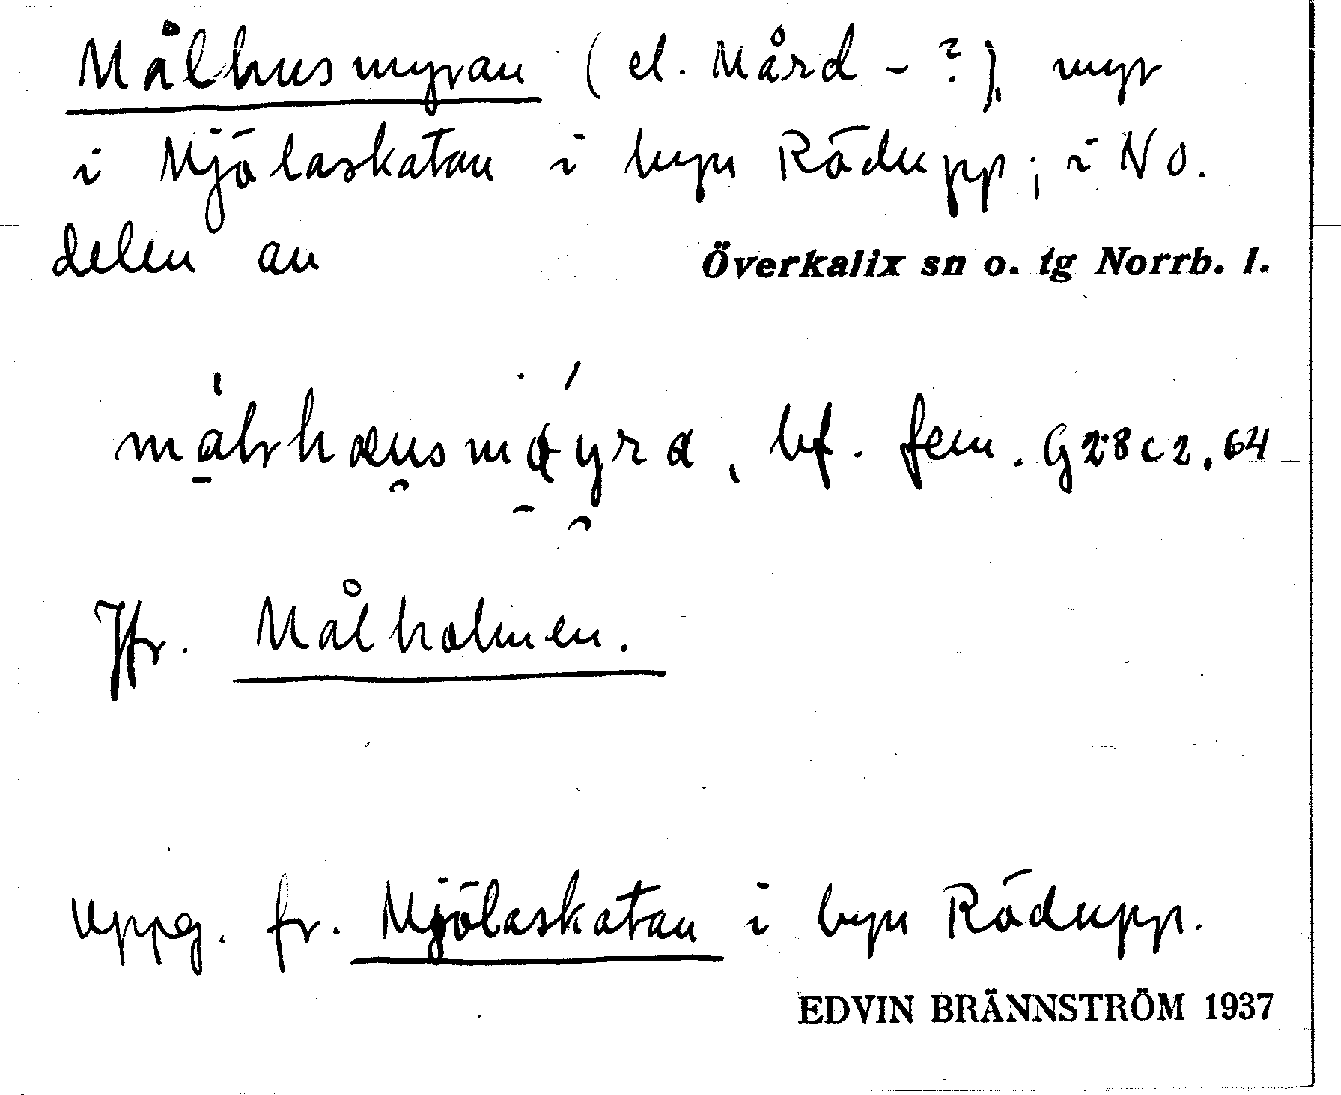 Målhusmyran (el. Mård - ?), myr
i Mjölaskatan i byn Rödupp; i No.
delen av Överkalix sn o. tg Norrb. l.
bf. fem. G28c2.64
Jfr. Målholmen.
Uppg. fr. Mjölaskatan i byn Rödupp.
EDVIN BRÄNNSTRÖM 1937